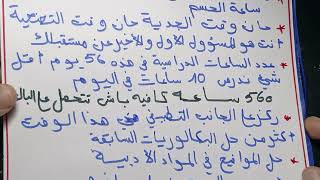 ساعة الحسم
حان وقت الجدية حان وقت التضحية
انت هو المسؤول الاول والاخير عن مستقبلك
عدد الساعات الدراسية في هذه 56 يوم اقل
شيئ ندرس 10 ساعات في اليوم
560 ساعة كافية باش تتحصل على الباك
ركز على الجانب التطبيقي في هذا الوقت
اكثر من حل البكالوريات السابقة
حل المواضيع في المواد الادبية